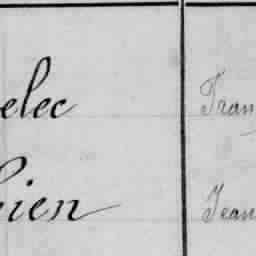 elec
Fran
ien
Jean